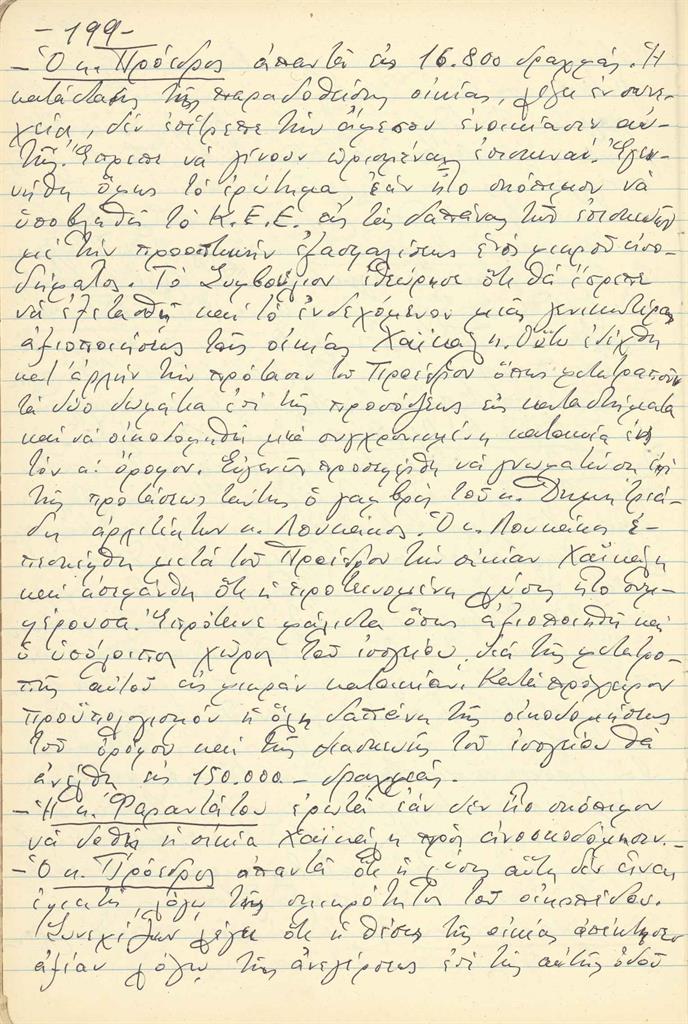 -199-
- Ὁ κ. Πρόεδρος ἀπαντᾶ εἰς 16.800 δραχμάς. Ἡ
κατάστασις τῆς παραδοθείσης οἰκίας, λέγει ἐν συνε-
χείᾳ, δέν ἐπέτρεπε τήν ἄμεσον ἐνοικίασιν αὐ-
τῆς. Ἔπρεπε νά γίνουν ὡρισμέναι ἐπισκευαί. Ἐγεν-
νήθη ὅμως τό ἐρώτημα, ἐάν ἦτο σκόπιμον νά
ὑποβληθῆ τό Κ.Ε.Ε. εἰς τάς δαπάνας τῶν ἐπισκευῶν
μέ τήν προοπτικήν ἐξασφαλίσεως ἑνός μικροῦ εἰσο-
δήματος. Τό Συμβούλιον ἐθεώρησε ὅτι θά ἔπρεπε
νά ἐξετασθῆ καί τό ἐνδεχόμενον μιᾶς γενικωτέρας
ἀξιοποιήσεως τῆς οἰκίας Χαϊκάλη. Οὕτω ἐδέχθη
κατ' ἀρχήν τήν πρότασιν τοῦ Προέδρου ὅπως μετατραποῦν
τά δύο δωμάτια ἐπί τῆς προσόψεως εἰς καταστήματα
καί νά οἰκοδομηθῆ μιά συγχρονισμένη κατοικία εἰς
τόν α! ὄροφον. Εὐγενῶς προσεφέρθη νά γνωματεύση ἐπί
τῆς προτάσεως ταύτης ὁ γαμβρός τοῦ κ. Δημητριά-
δη ἀρχιτέκτων κ. Λουκάκος. Ὁ κ. Λουκάκος ἐ-
πεσκέφθη μετά τοῦ Προέδρου τήν οἰκίαν Χαϊκάλη
καί ἀπεφάνθη ὅτι ἡ προτεινομένη λύσις ἦτο συμ-
φέρουσα. Ἐπρότεινε μάλιστα ὅπως ἀξιοποιηθῆ καί
ὁ ὑπόλοιπος χῶρος τοῦ ἰσογείου διά τῆς μετατρο-
πῆς αὐτοῦ εἰς μικράν κατοικίαν. Κατά πρόχειρον
προϋπολογισμόν ἡ ὅλη δαπάνη τῆς οἰκοδομήσεως
τοῦ ὀρόφου καί τῆς διασκευῆς τοῦ ἰσογείου θά
ἀνέλθη εἰς 150.000 - δραχμάς.
- Ἡ κ. Φαραντάτου ἐρωτᾶ ἐάν δέν ἦτο σκόπιμον
νά δοθῆ ἡ οἰκία Χαϊκάλη πρός ἀνοικοδόμησιν.-
- Ὁ κ. Πρόεδρος ἀπαντᾶ ὅτι ἡ λύσις αὕτη δέν εἶναι
ἐφικτή λόγῳ τῆς σμικρότητος τοῦ οἰκοπέδου.
Συνεχίζων λέγει ὅτι ἡ θέσις τῆς οἰκίας ἀπέκτησεν
ἀξίαν λόγῳ τῆς ἀνεγέρσεως ἐπί τῆς αὐτῆς ὁδοῦ